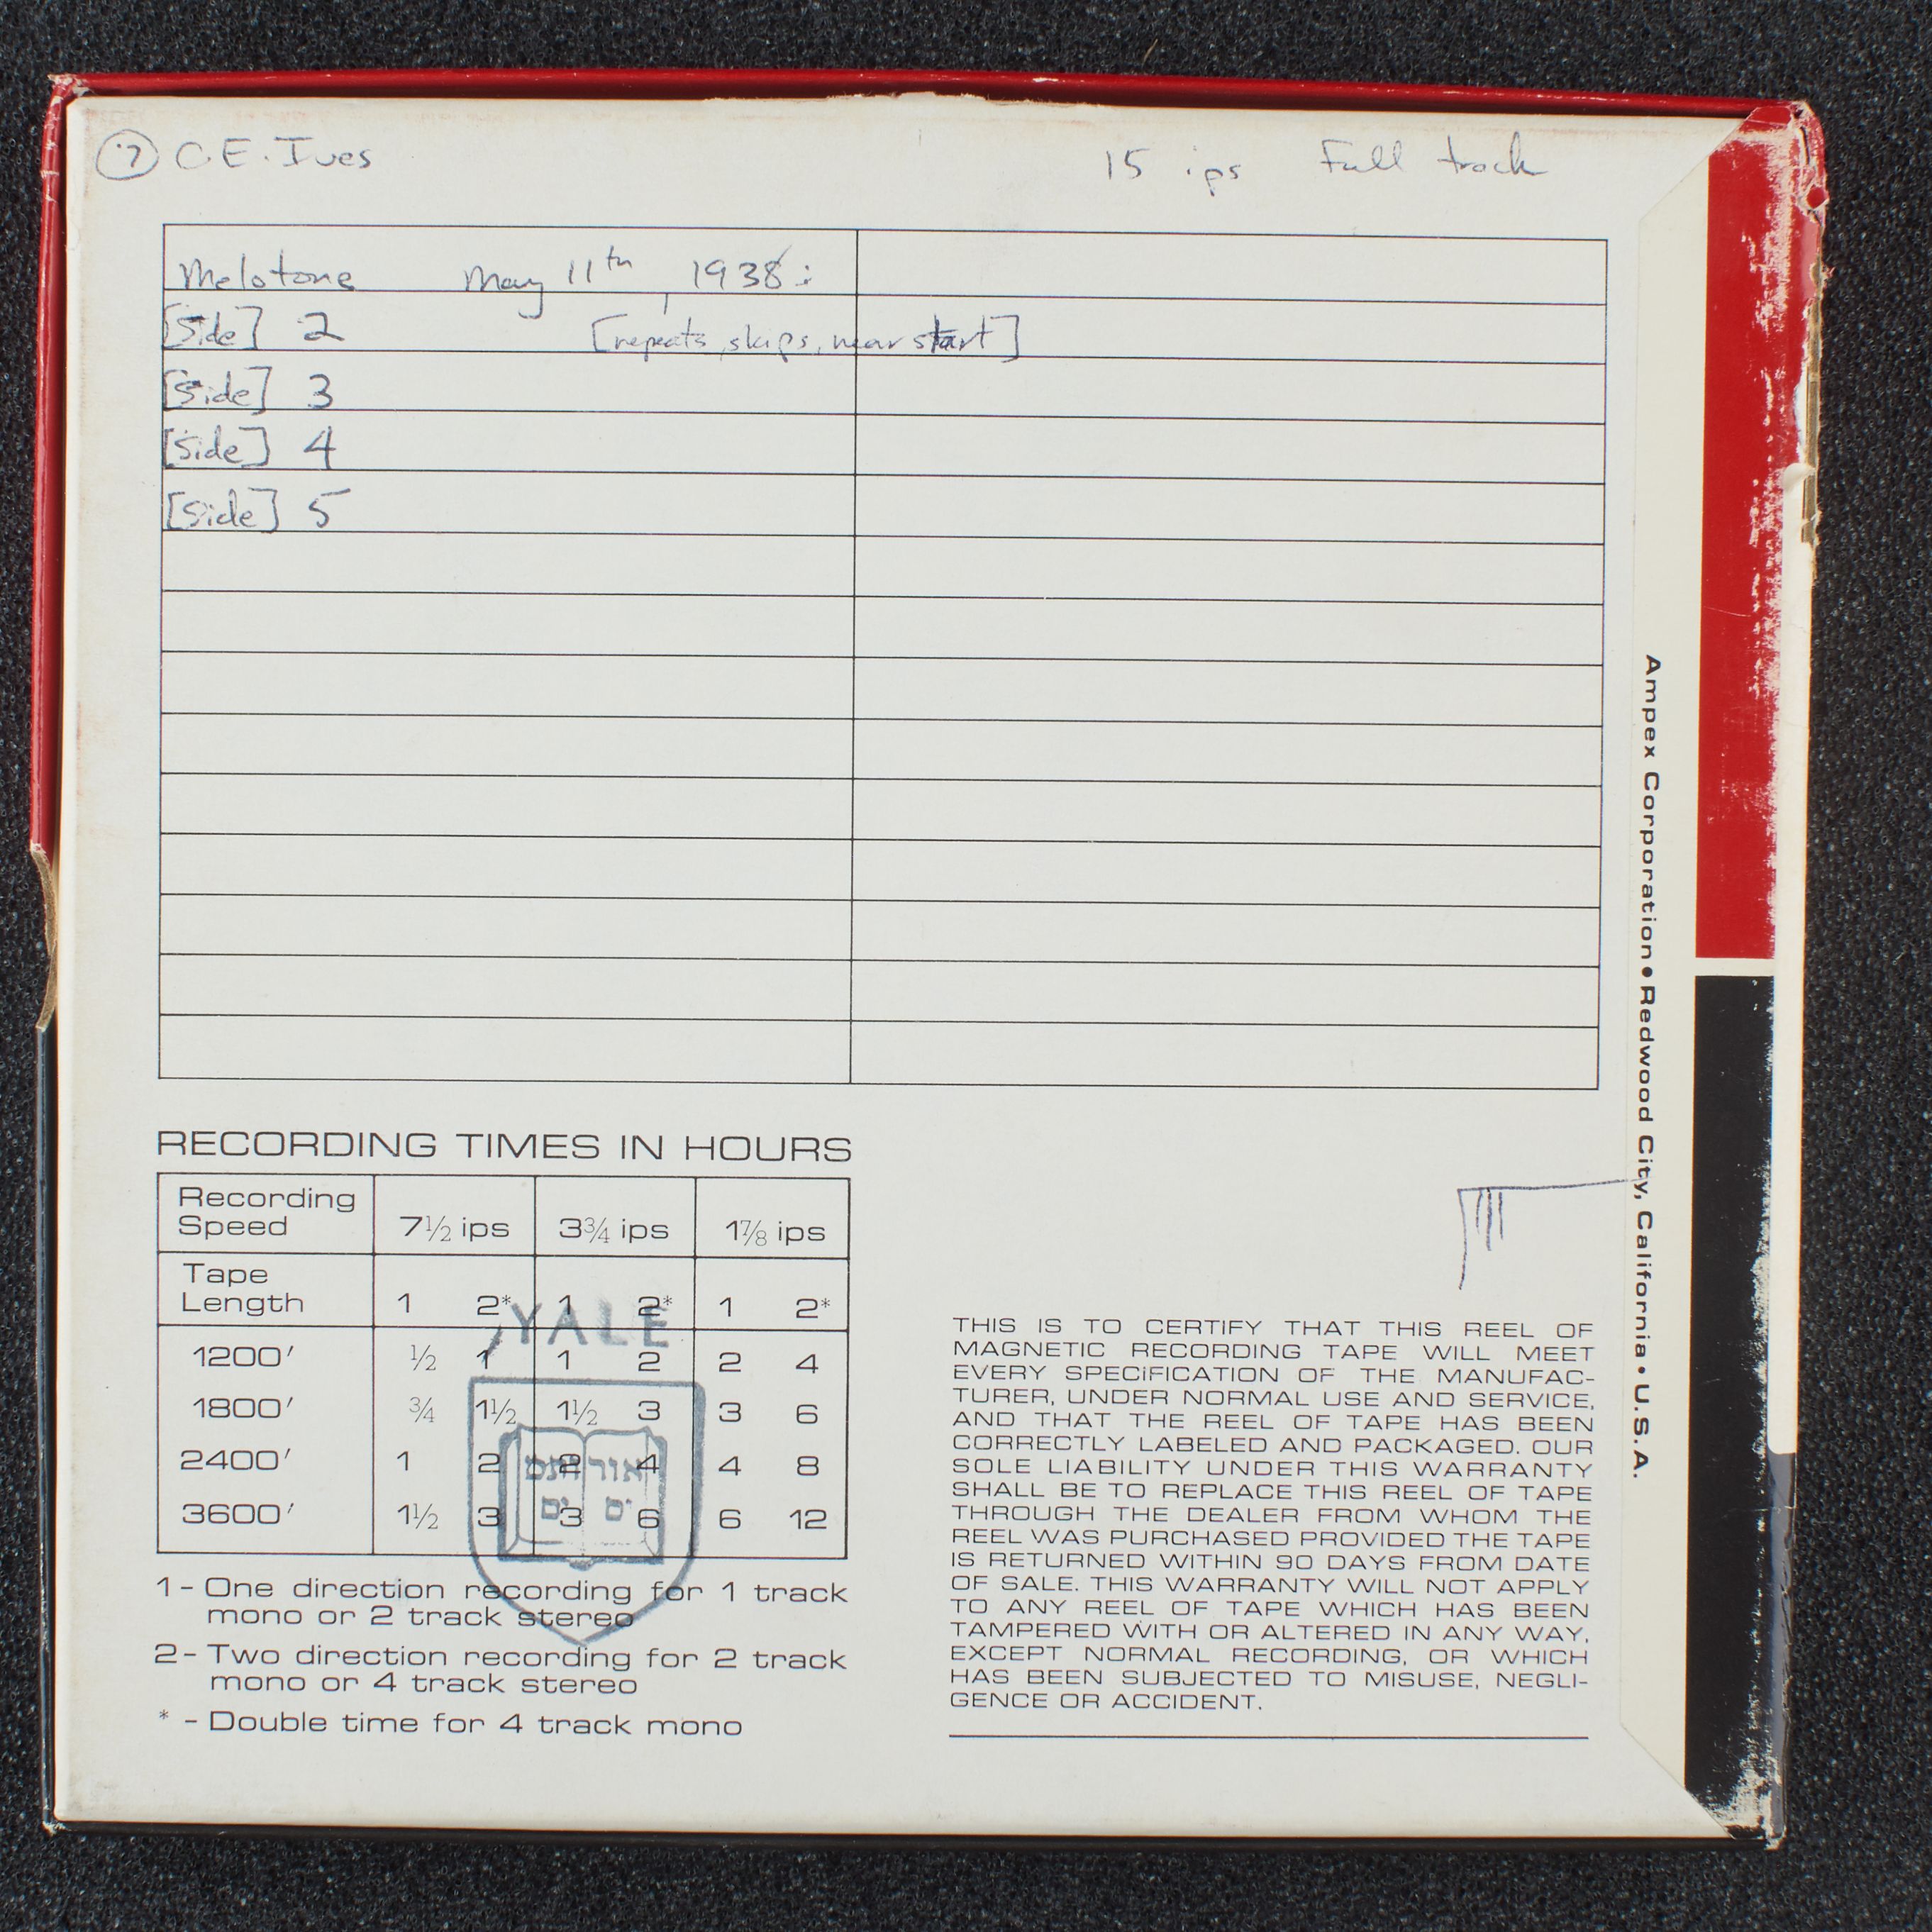 7 C.E. Ives 15 ips Full track
Melotone May 11th, 1938:
[Side] 2 [repeats, skips, near start]
[Side] 3
[Side] 4
[Side] 5
RECORDING TIMES IN HOURS
Recording Speed 7½ ips 3¾ ips 1⅞ ips
Tape Length 1 2* 1 2* 1 2*
1200' ½ 1 1 2 2 4
1800' ¾ 1½ 1½ 3 3 6
2400' 1 2 2 4 4 8
3600' 1½ 3 3 6 6 12
1 - One direction recording for 1 track
mono or 2 track stereo
2 - Two direction recording for 2 track
mono or 4 track stereo
* - Double time for 4 track mono
YALE
אורים
ותמים
THIS IS TO CERTIFY THAT THIS REEL OF
MAGNETIC RECORDING TAPE WILL MEET
EVERY SPECIFICATION OF THE MANUFAC-
TURER, UNDER NORMAL USE AND SERVICE,
AND THAT THE REEL OF TAPE HAS BEEN
CORRECTLY LABELED AND PACKAGED. OUR
SOLE LIABILITY UNDER THIS WARRANTY
SHALL BE TO REPLACE THIS REEL OF TAPE
THROUGH THE DEALER FROM WHOM THE
REEL WAS PURCHASED PROVIDED THE TAPE
IS RETURNED WITHIN 90 DAYS FROM DATE
OF SALE. THIS WARRANTY WILL NOT APPLY
TO ANY REEL OF TAPE WHICH HAS BEEN
TAMPERED WITH OR ALTERED IN ANY WAY,
EXCEPT NORMAL RECORDING, OR WHICH
HAS BEEN SUBJECTED TO MISUSE, NEGLI-
GENCE OR ACCIDENT.
Ampex Corporation • Redwood City, California • U.S.A.